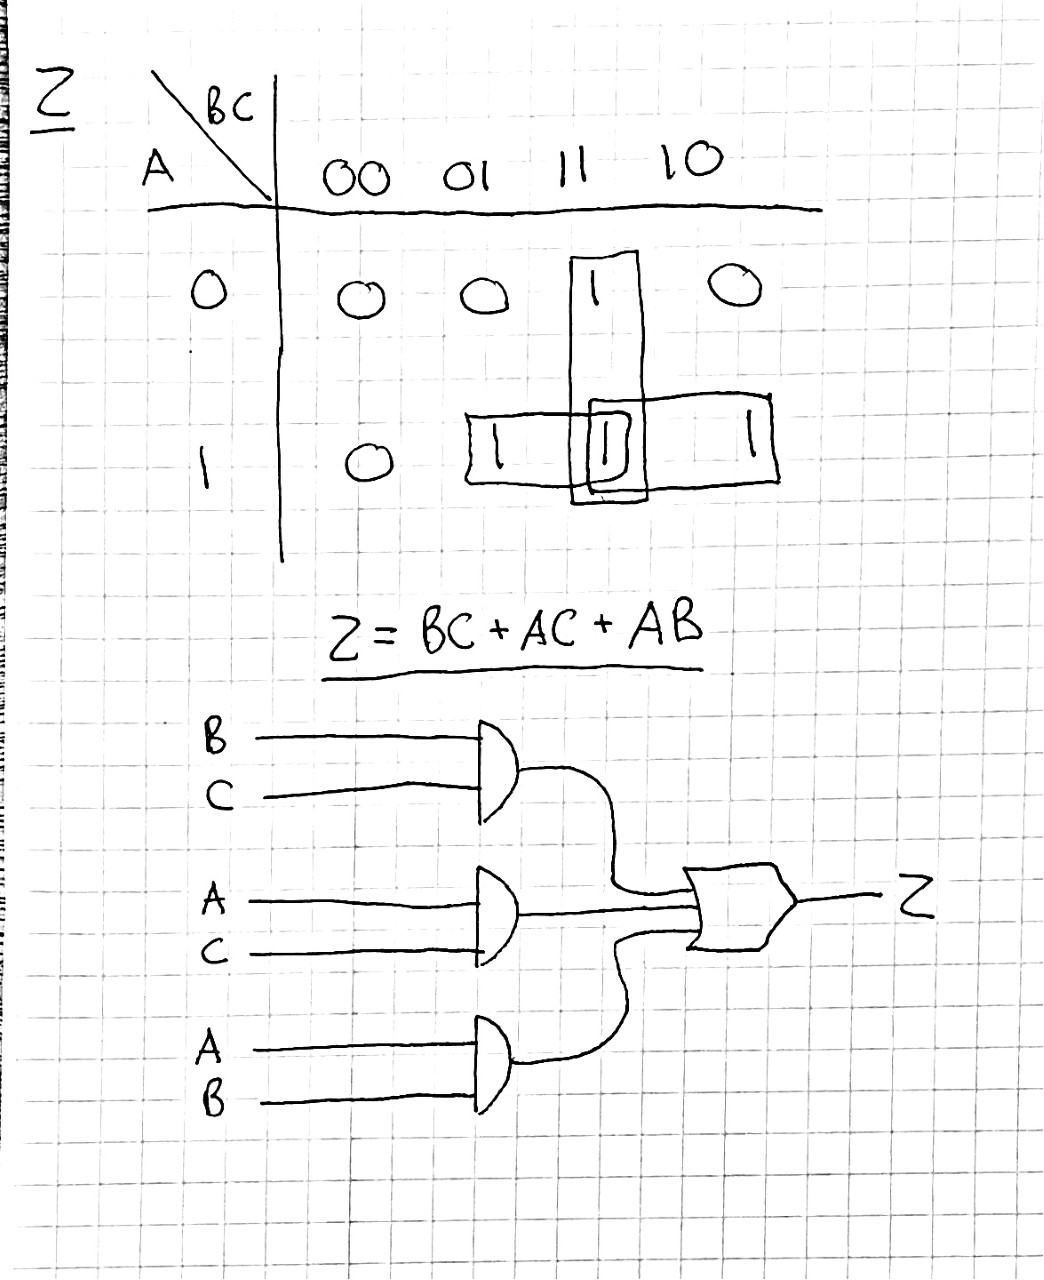 Z
BC
A 00 01 11 10
0 0 0 1 0
1 0 1 1 1
Z = BC + AC + AB
B
C
A
C
Z
A
B